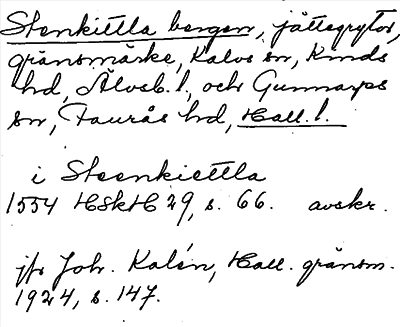 Stenkittla bergen, jättegrytor,
gränsmärke, Kalvs sn, Kinds
hd, Älvsb. l., och Gunnarps
sn, Faurås hd, Hall. l.
i Steenkiettla
1554 HSkH 29, s. 66. avskr.
jfr Joh. Kalén, Hall. gränsm.
1924, s. 147.